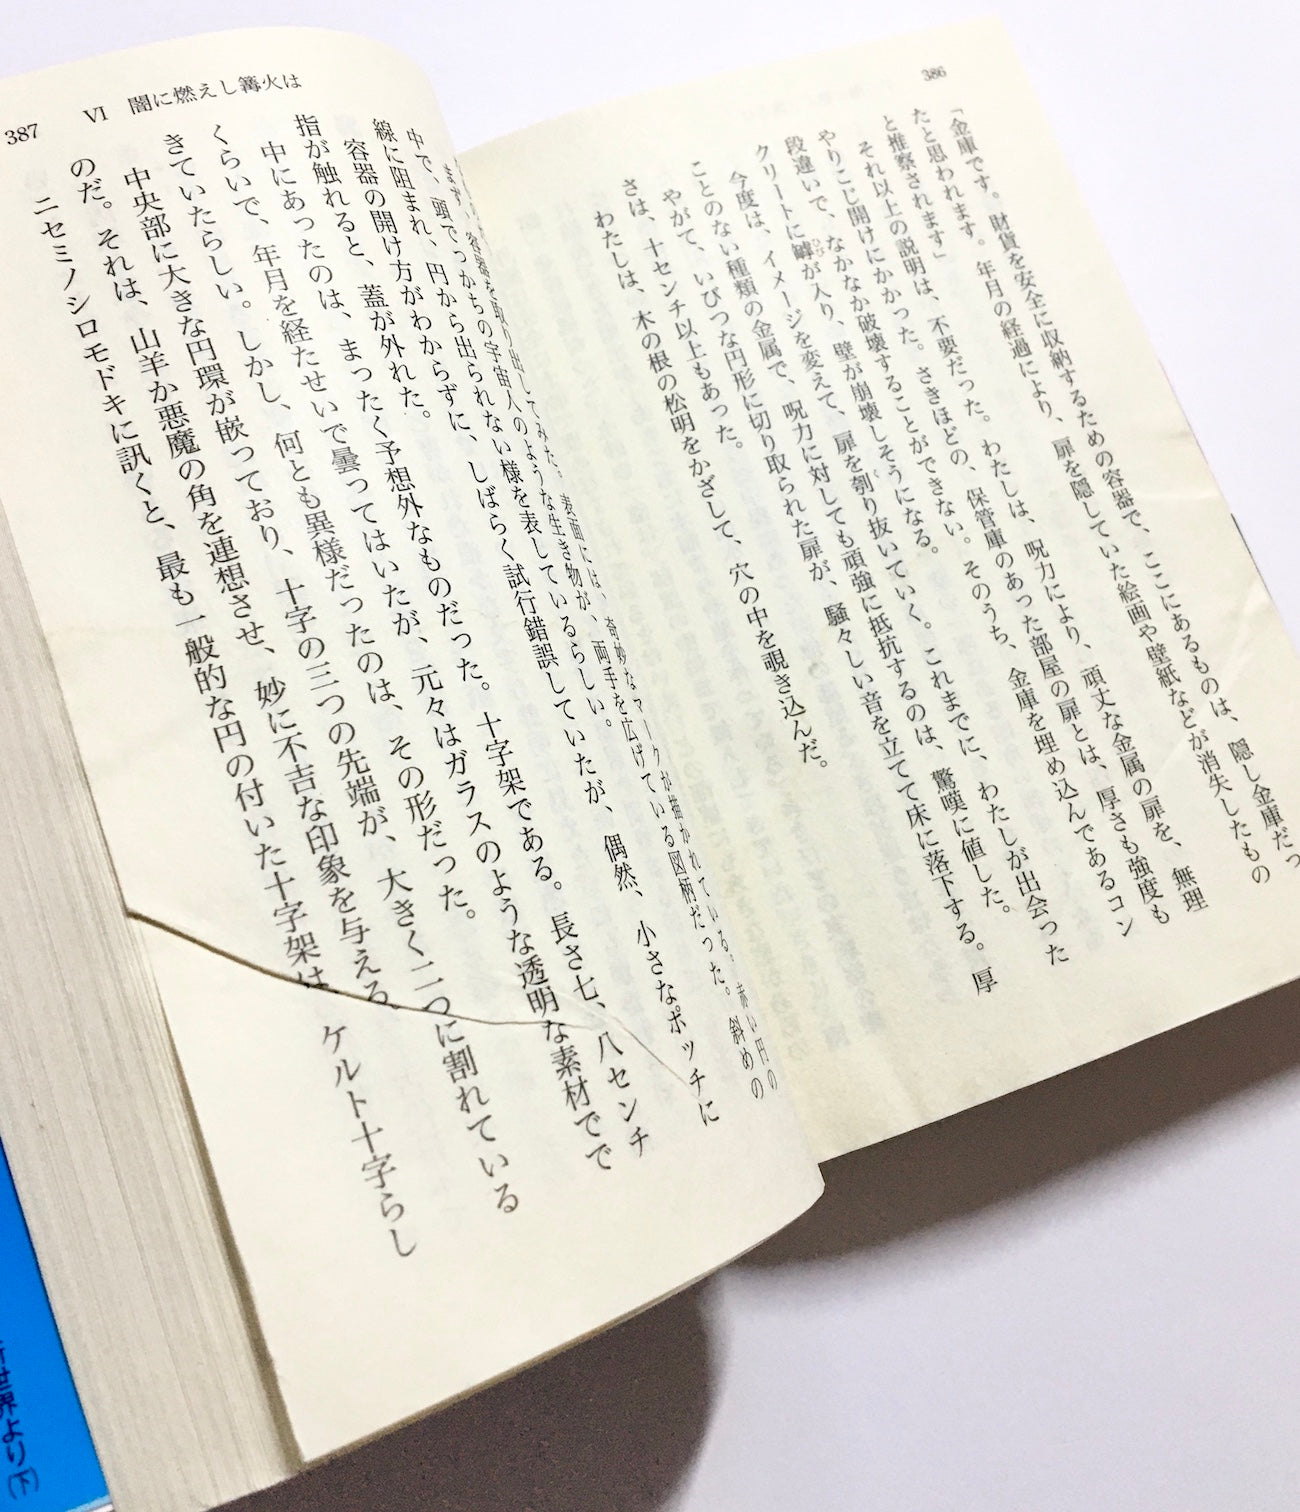 386
「金庫です。財貨を安全に収納するための容器で、ここにあるものは、隠し金庫だっ
たと思われます。年月の経過により、扉を隠していた絵画や壁紙などが消失したもの
と推察されます」
それ以上の説明は、不要だった。わたしは、呪力により、頑丈な金属の扉を、無理
やりこじ開けにかかった。さきほどの、保管庫のあった部屋の扉とは、厚さも強度も
段違いで、なかなか破壊することができない。そのうち、金庫を埋め込んであるコン
クリートに罅が入り、壁が崩壊しそうになる。
今度は、イメージを変えて、扉を刳り抜いていく。これまでに、わたしが出会った
ことのない種類の金属で、呪力に対しても頑強に抵抗するのは、驚嘆に値した。
やがて、いびつな円形に切り取られた扉が、騒々しい音を立てて床に落下する。厚
さは、十センチ以上もあった。
わたしは、木の根の松明をかざして、穴の中を覗き込んだ。
387
Ⅵ 闇に燃えし篝火は
まず、容器を取り出してみた。表面には、奇妙なマークが描かれている。赤い円の
中で、頭でっかちの宇宙人のような生き物が、両手を広げている図柄だった。斜めの
線に阻まれ、円から出られない様を表しているらしい。
容器の開け方がわからずに、しばらく試行錯誤していたが、偶然、小さなポッチに
指が触れると、蓋が外れた。
中にあったのは、まったく予想外なものだった。十字架である。長さ七、八センチ
くらいで、年月を経たせいで曇ってはいたが、元々はガラスのような透明な素材でで
きていたらしい。しかし、何とも異様だったのは、その形だった。
中央部に大きな円環が嵌っており、十字の三つの先端が、大きく二つに割れている
のだ。それは、山羊か悪魔の角を連想させ、妙に不吉な印象を与える。
ニセミノシロモドキに訊くと、最も一般的な円の付いた十字架は、ケルト十字らし
新世界より(下)